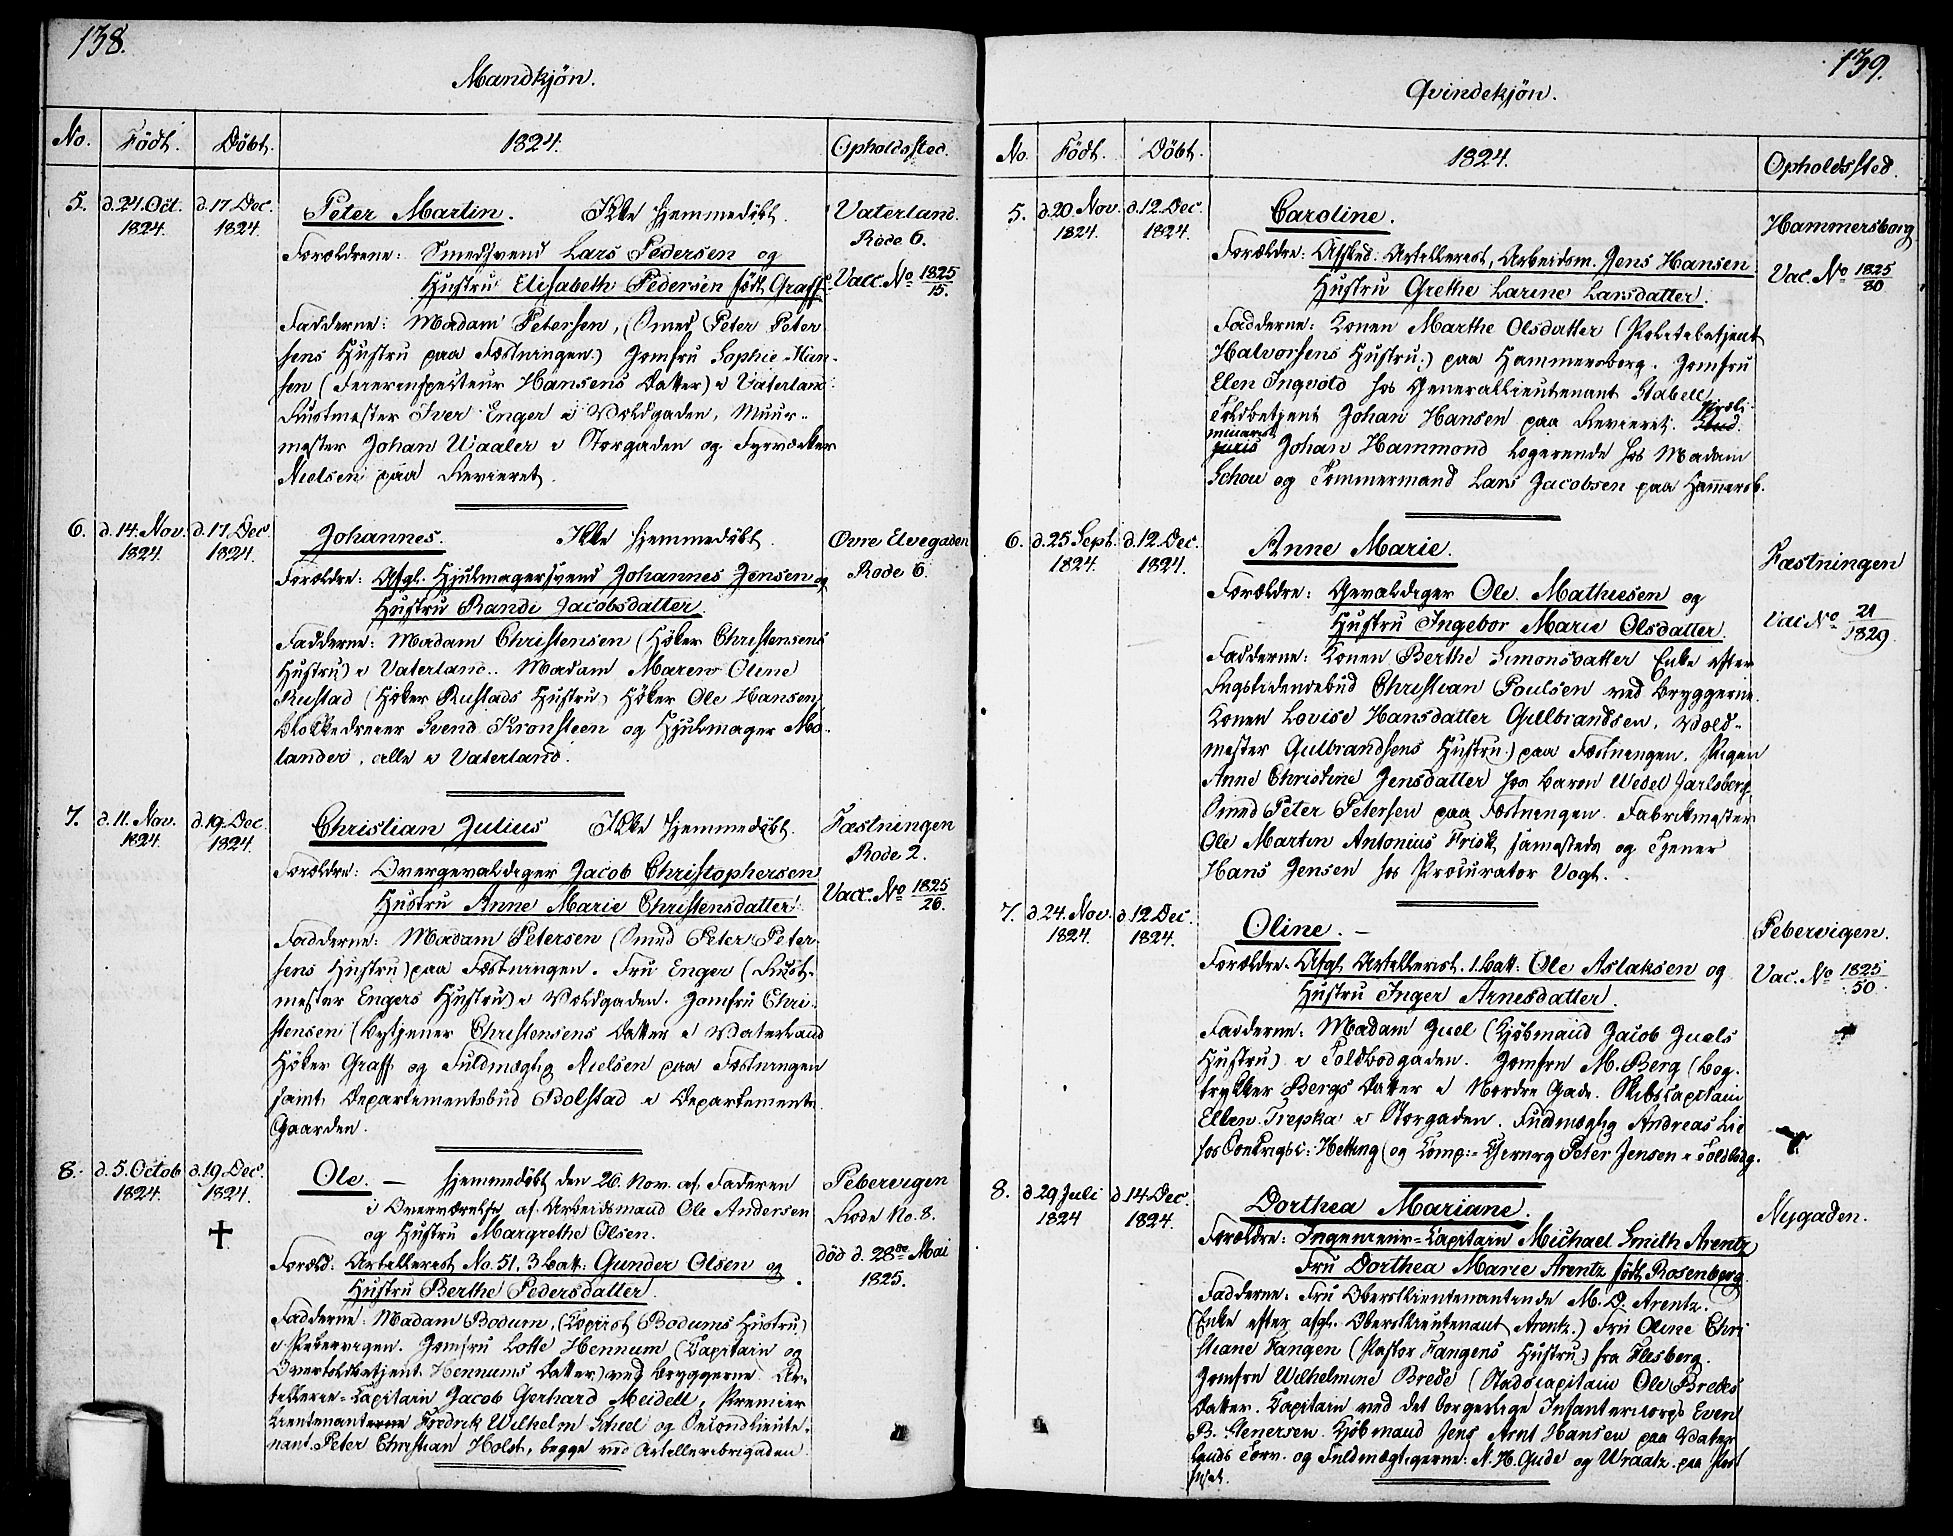 138.
Mandkjøn.
No. Født. Døbt. 1824. Opholdssted.
5. d. 24. Oct. 1824. d. 17. Dec. 1824. Peter Martin. Ikke hjemmedøbt. Vaterland. Rode 6.
Forældrene: Smedsvend Lars Pedersen og
Hustru Elisabeth Pedersen født Graff. Vacc. No 1825/15.
Fadderne: Madam Petersen, (Smed Peter Peter
sens Hustru paa Fæstningen.) Jomfru Sophie Han-
sen (Feierinspecteur Hansens Datter) i Vaterland
Rustmester Iver Enger i Voldgaden, Muur-
mester Johan Waaler i Storgaden og Fyrværker
Nielsen paa Revieret.
6. d. 14. Nov. 1824. d. 17. Dec. 1824. Johannes. Ikke hjemmedøbt. Øvre Elvegaden Rode 6.
Forældre: Afgl. Hjulmagersvend Johannes Jensen og
Hustru Randi Jacobsdatter.
Fadderne: Madam Christensen (Høker Christensens
Hustru) i Vaterland. Madam Maren Oline
Rustad (Høker Rustads Hustru) Høker Ole Hansen,
Blokkedreier Svend Kronsteen og Hjulmager Mo-
lander, alle i Vaterland.
7. d. 11. Nov. 1824. d. 19. Dec. 1824. Christian Julius Ikke hjemmedøbt. Fæstningen Rode 2.
Forældre: Overgevaldiger Jacob Christophersen
Hustru Anne Marie Christensdatter. Vacc. No 1825/26.
Fadderne: Madam Petersen (Smed Peter Peter-
sens Hustru) paa Fæstningen. Fru Enger (Rust-
mester Engers Hustru) i Voldgaden. Jomfru Chri-
stensen (Bytjener Christensens Datter i Vaterland
Høker Graff og Fuldmægtig Nielsen paa Fæstningen
samt Departementsbud Bolstad i Departements
Gaarden.
8. d. 5. Octob 1824. d. 19. Dec. 1824. Ole. — Hjemmedøbt den 26. Nov. af Faderen Pebervigen
i Overværelse af Arbeidsmand Ole Andersen Rode No. 8.
og Hustru Margrethe Olsen.
Foræld: Artillerist No. 51, 3 Batt: Gunder Olsen og død d. 28de Mai
Hustru Berthe Pedersdatter. 1825.
Fadderne: Madam Bodum, (Copiist Bodums Hustru)
i Pebervigen. Jomfru Lotte Hennum (Capitain og
Overtoldbetjent Hennums Datter) ved Bryggerne. Ar-
tillerie-Capitain Jacob Gerhard Meidell, Premier
Lieutenanterne Fredrik Wilhelm Scheel og Secondlieute-
nant Peter Christian Holst, begge ved Artilleribrigaden
139.
Qvindekjøn.
No. Født. Døbt. 1824. Opholdssted.
5. d. 20 Nov. 1824. d. 12. Dec. 1824. Caroline. Hammersborg
Forældre: Afsked. Artillerist, Arbeidsm. Jens Hansen
Hustru Grethe Larine Larsdatter. Vac. No 1825/80
Fadderne: Konen Marthe Olsdatter (Politibetjent
Halvorsens Hustru) paa Hammersborg. Jomfru
Elen Ingvold hos GeneralLieutenant Stabell
Toldbetjent Johan Hansen paa Revieret. Stud. Præli-
juris minarist Johan Hammond logerende hos Madam
Schou og Tømmermand Lars Jacobsen paa Hammersb.
6. d. 25 Sept. 1824. d. 12. Dec. 1824. Anne Marie. Fæstningen
Forældre: Gevaldiger Ole Mathiesen og
Hustru Ingebor Marie Olsdatter. Vac No 21/1829
Fadderne: Konen Berthe Simonsdatter Enke efter
Ingstidendebud Christian Poulsen ved Bryggerne.
Konen Lovise Hansdatter Gulbrandsen, Vold-
mester Gulbrandsens Hustru) paa Fæstningen. Pigen
Anne Christine Jensdatter hos Baron Wedel Jarlsberg.
Smed Peter Petersen paa Fæstningen. Fabrikmester
Ole Martin Antonius Frisk sammesteds og Tjener
Hans Jensen hos Procurator Vogt.
7. d. 24. Nov. 1824. d. 12 Dec. 1824. Oline. — Pebervigen.
Forældre. Afgl. Artillerist. 1. Batt: Ole Aslaksen og
Hustru Inger Arnesdatter. Vac. No 1825/50
Fadderne: Madam Juel (Kjøbmand Jacob Juels
Hustru) i Toldbodgaden. Jomfru M. Berg (Bog-
trykker Bergs Datter i Nordre Gade. Skibscapitain
Ellen Trepka i Storgaden. Fuldmægtig Andreas Lie
hos Hetting (og Peter Jensen i Toldbodg.
8. d. 29 Juli 1824 d. 14. Dec. 1824. Dorthea Mariane. Nygaden.
Forældre: Ingenieur-Capitain Michael Smith Arentz
Fru Dorthea Marie Arentz født Rosenberg.
Fadderne: Fru Oberstlieutenantinde M. D. Arentz.
(Enke efter afgl. Oberstlieutenant Arentz.) Fru Oline Chri
stiane Fangen (Pastor Fangens Hustru) fra Flesberg.
Jomfru Wilhelmine Brede (Stadscapitain Ole Bredes
Datter. Capitain ved det borgerlige Infantericorps Even
B. Stenersen. Kjøbmand Jens Arnt Hansen paa Vater
lands Torv. og Fuldmægtigerne: N. H. Gude og Wraatz. paa